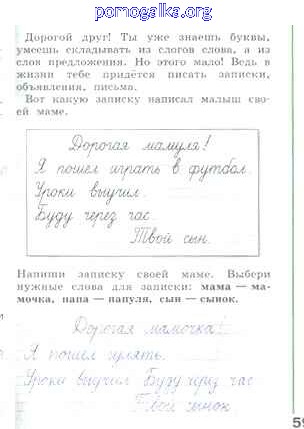 pomogalka.org
Дорогой друг! Ты уже знаешь буквы,
умеешь складывать из слогов слова, а из
слов предложения. Но этого мало! Ведь в
жизни тебе придётся писать записки,
объявления, письма.
Вот какую записку написал малыш сво-
ей маме.
Дорогая мамуля!
Я пошёл играть в футбол.
Уроки выучил.
Буду через час.
Твой сын.
Напиши записку своей маме. Выбери
нужные слова для записки: мама — ма-
мочка, папа — папуля, сын — сынок.
Дорогая мамочка!
Я пошёл гулять.
Уроки выучил Буду через час
Твой сынок.
59